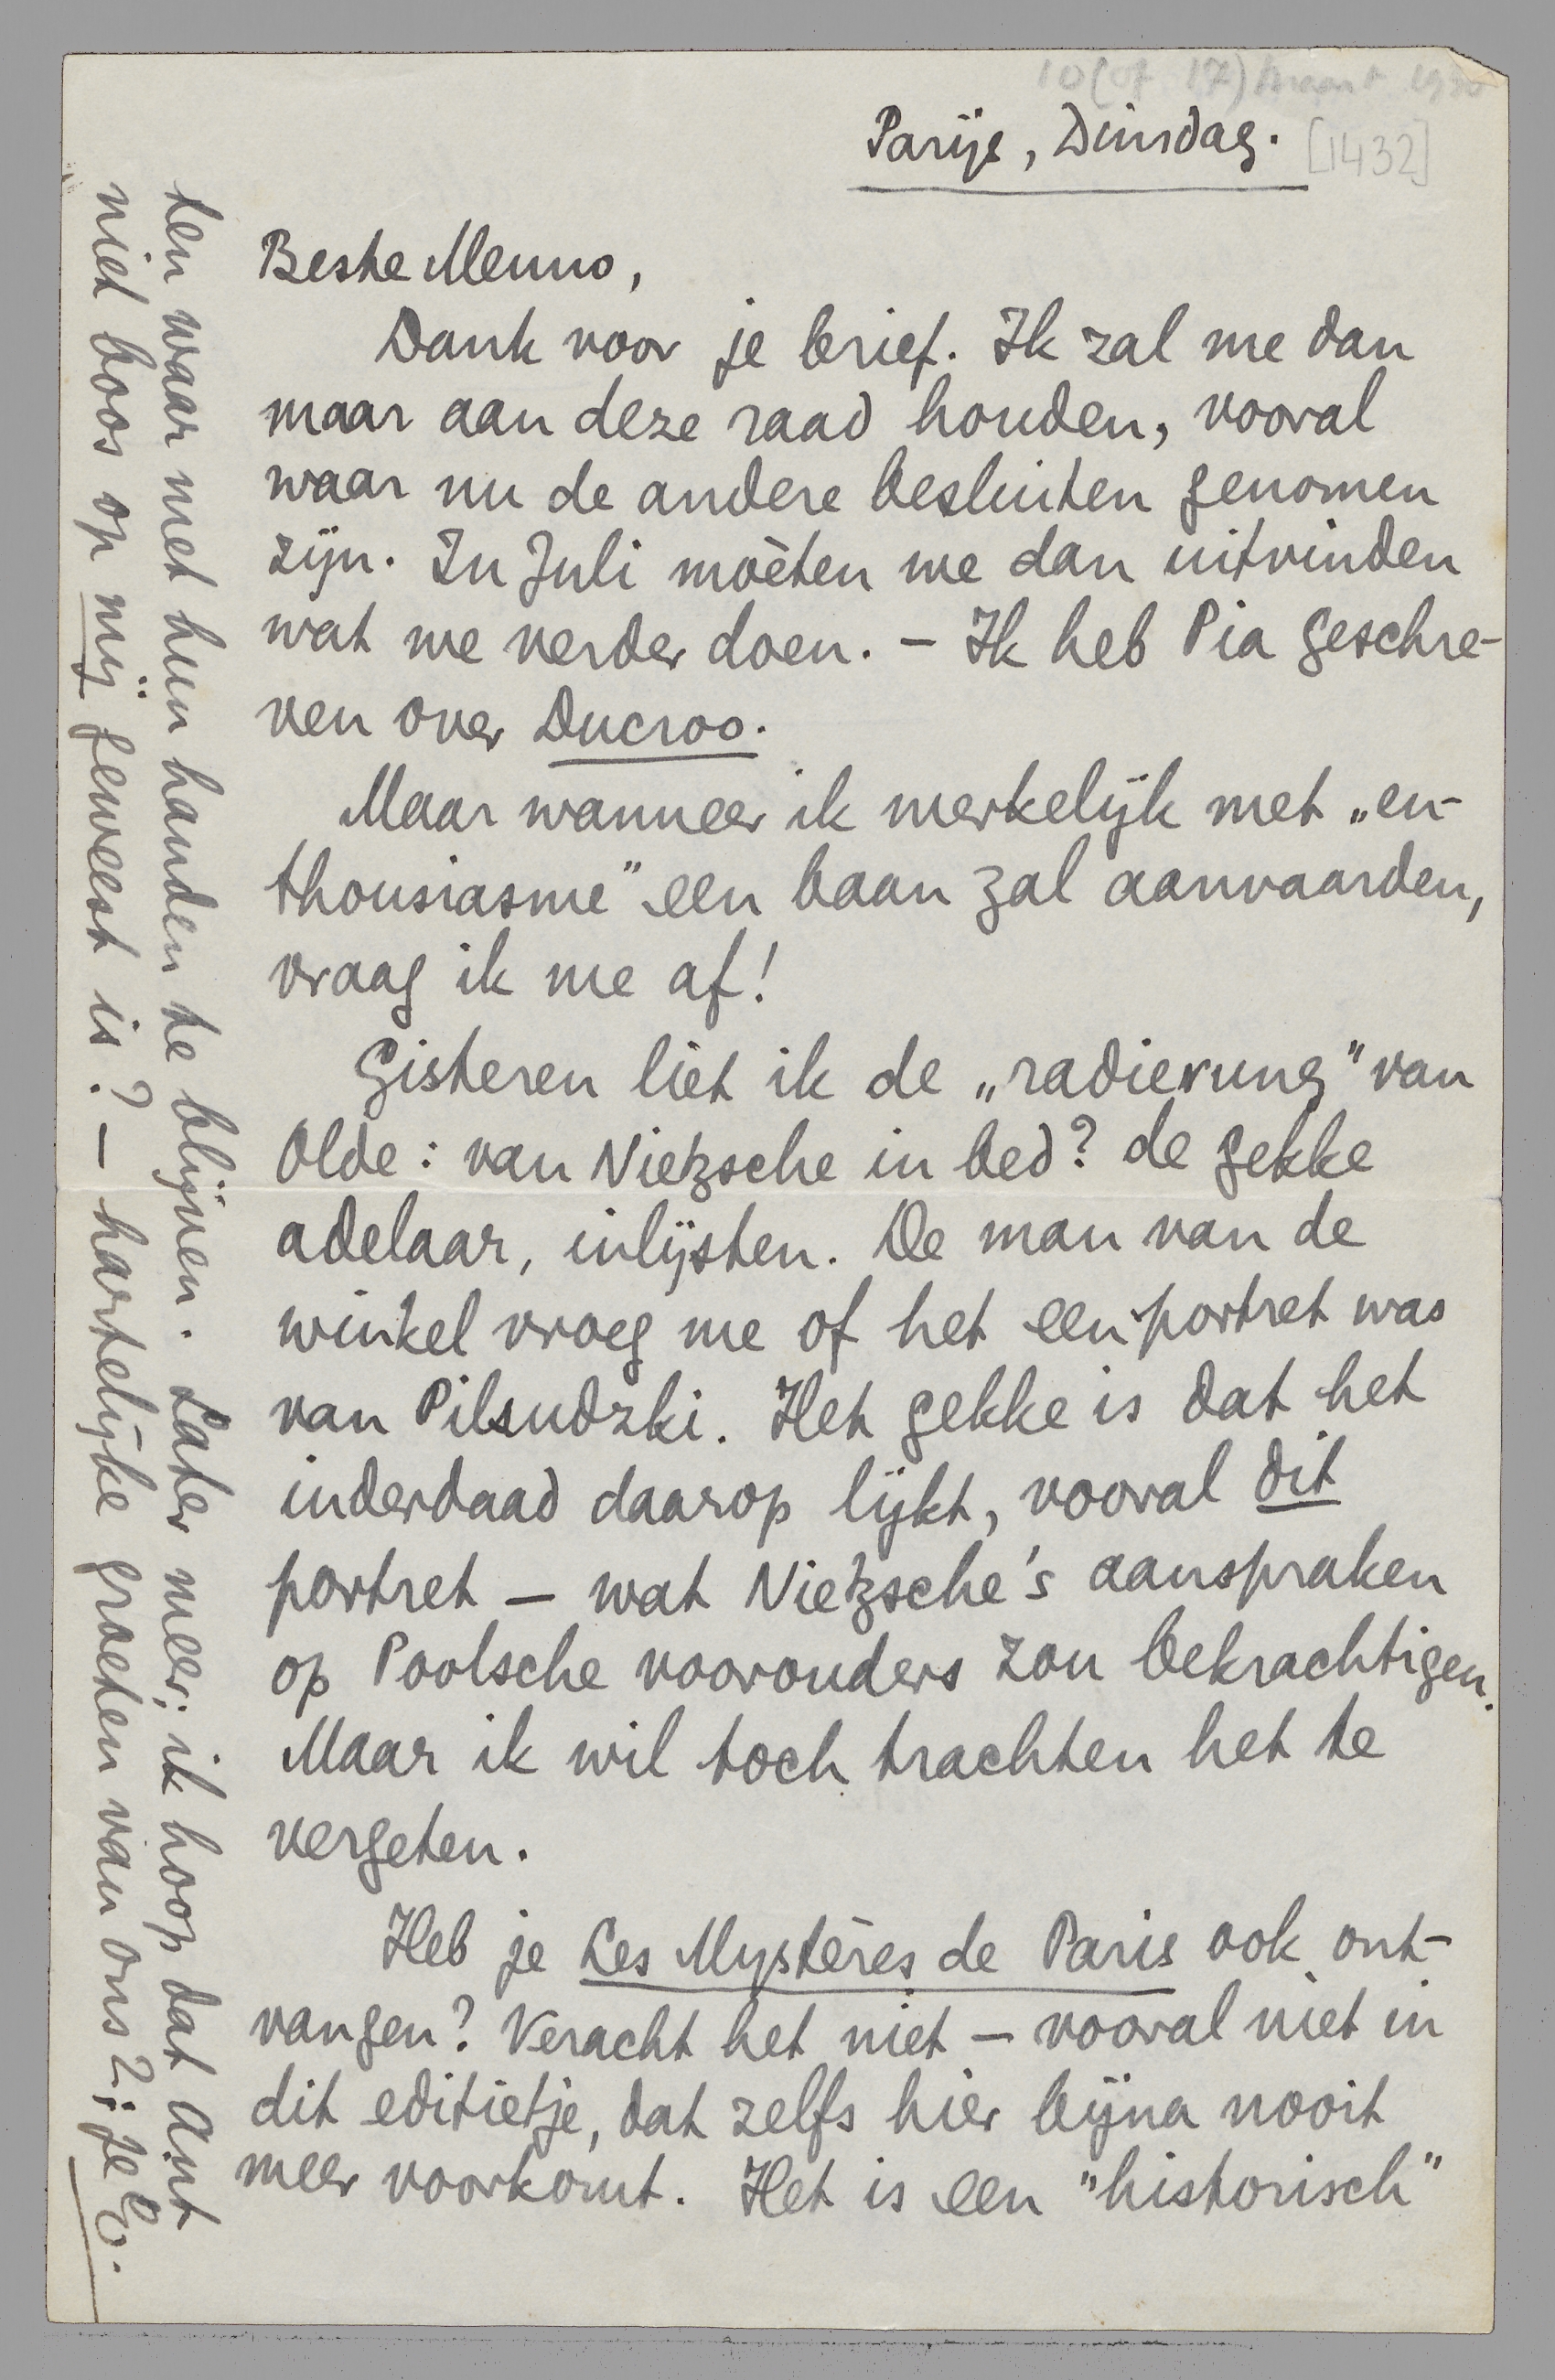 10 (of 17) maart 19
Parijs, Dinsdag.
[1432]
Beste Menno,
Dank voor je brief. Ik zal me dan
maar aan deze raad houden, vooral
waar nu de andere besluiten genomen
zijn. In Juli moèten we dan uitvinden
wat we verder doen. – Ik heb Pia geschre-
ven over Ducroo.
Maar wanneer ik werkelijk met „en-
thousiasme” een baan zal aanvaarden,
vraag ik me af!
Gisteren liet ik de „radierung” van
Olde: van Nietzsche in bed? de gekke
adelaar, inlijsten. De man van de
winkel vroeg me of het een portret was
van Pilsudzki. Het gekke is dat het
inderdaad daarop lijkt, vooral dit
portret – wat Nietzsche's aanspraken
op Poolsche voorouders zou bekrachtigen.
Maar ik wil toch trachten het te
vergeten.
Heb je Les Mystères de Paris ook ont-
vangen? Veracht het niet – vooral niet in
dit editietje, dat zelfs hier bijna nooit
meer voorkomt. Het is een "historisch"
ten waar met hun handen te blijven. Later meer; ik hoop dat Ant
niet boos op mij geweest is? – hartelijke groeten van ons 2; je E.